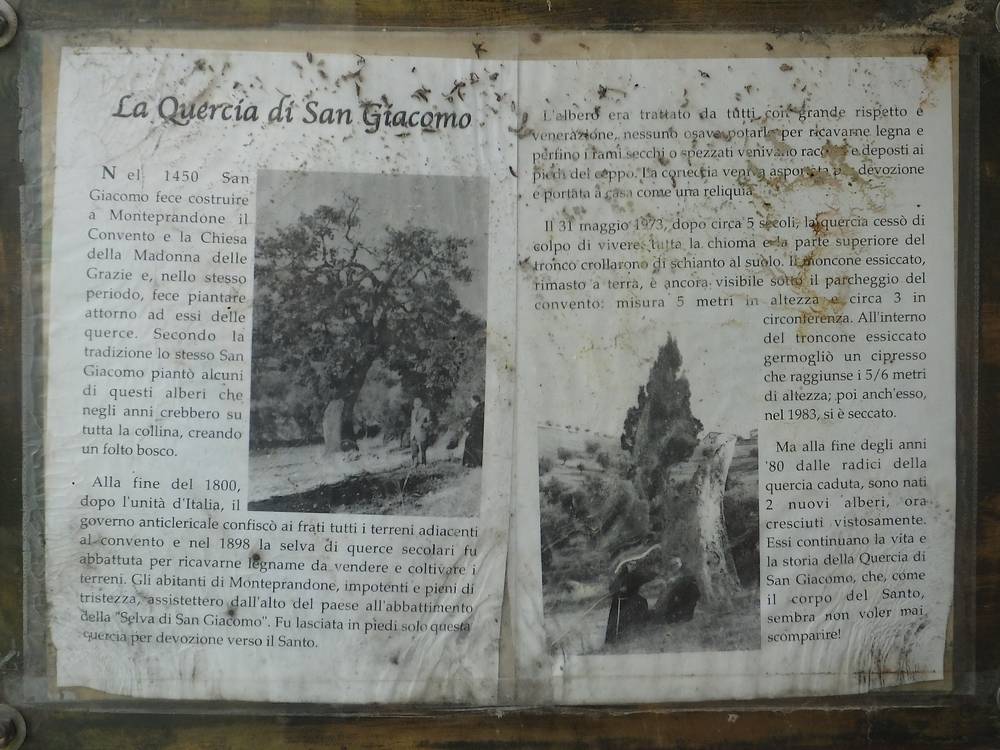 La Quercia di San Giacomo
Nel 1450 San
Giacomo fece costruire
a Monteprandone il
Convento e la Chiesa
della Madonna delle
Grazie e, nello stesso
periodo, fece piantare
attorno ad essi delle
querce. Secondo la
tradizione lo stesso San
Giacomo piantò alcuni
di questi alberi che
negli anni crebbero su
tutta la collina, creando
un folto bosco.
Alla fine del 1800,
dopo l'unità d'Italia, il
governo anticlericale confiscò ai frati tutti i terreni adiacenti
al convento e nel 1898 la selva di querce secolari fu
abbattuta per ricavarne legname da vendere e coltivare i
terreni. Gli abitanti di Monteprandone, impotenti e pieni di
tristezza, assistettero dall'alto del paese all'abbattimento
della "Selva di San Giacomo". Fu lasciata in piedi solo questa
quercia per devozione verso il Santo.
L'albero era trattato da tutti con grande rispetto e
venerazione, nessuno osava potarlo per ricavarne legna e
perfino i rami secchi o spezzati venivano e deposti ai
piedi del ceppo. La corteccia veniva devozione
e portata a casa come una reliquia.
Il 31 maggio 1973, dopo circa 5 secoli, la quercia cessò di
colpo di vivere: tutta la chioma e la parte superiore del
tronco crollarono di schianto al suolo. Il troncone essiccato,
rimasto a terra, è ancora visibile sotto il parcheggio del
convento: misura 5 metri in altezza e circa 3 in
circonferenza. All'interno
del troncone essiccato
germogliò un cipresso
che raggiunse i 5/6 metri
di altezza; poi anch'esso,
nel 1983, si è seccato.
Ma alla fine degli anni
'80 dalle radici della
quercia caduta, sono nati
2 nuovi alberi, ora
cresciuti vistosamente.
Essi continuano la vita e
la storia della Quercia di
San Giacomo, che, come
il corpo del Santo,
sembra non voler mai
scomparire!